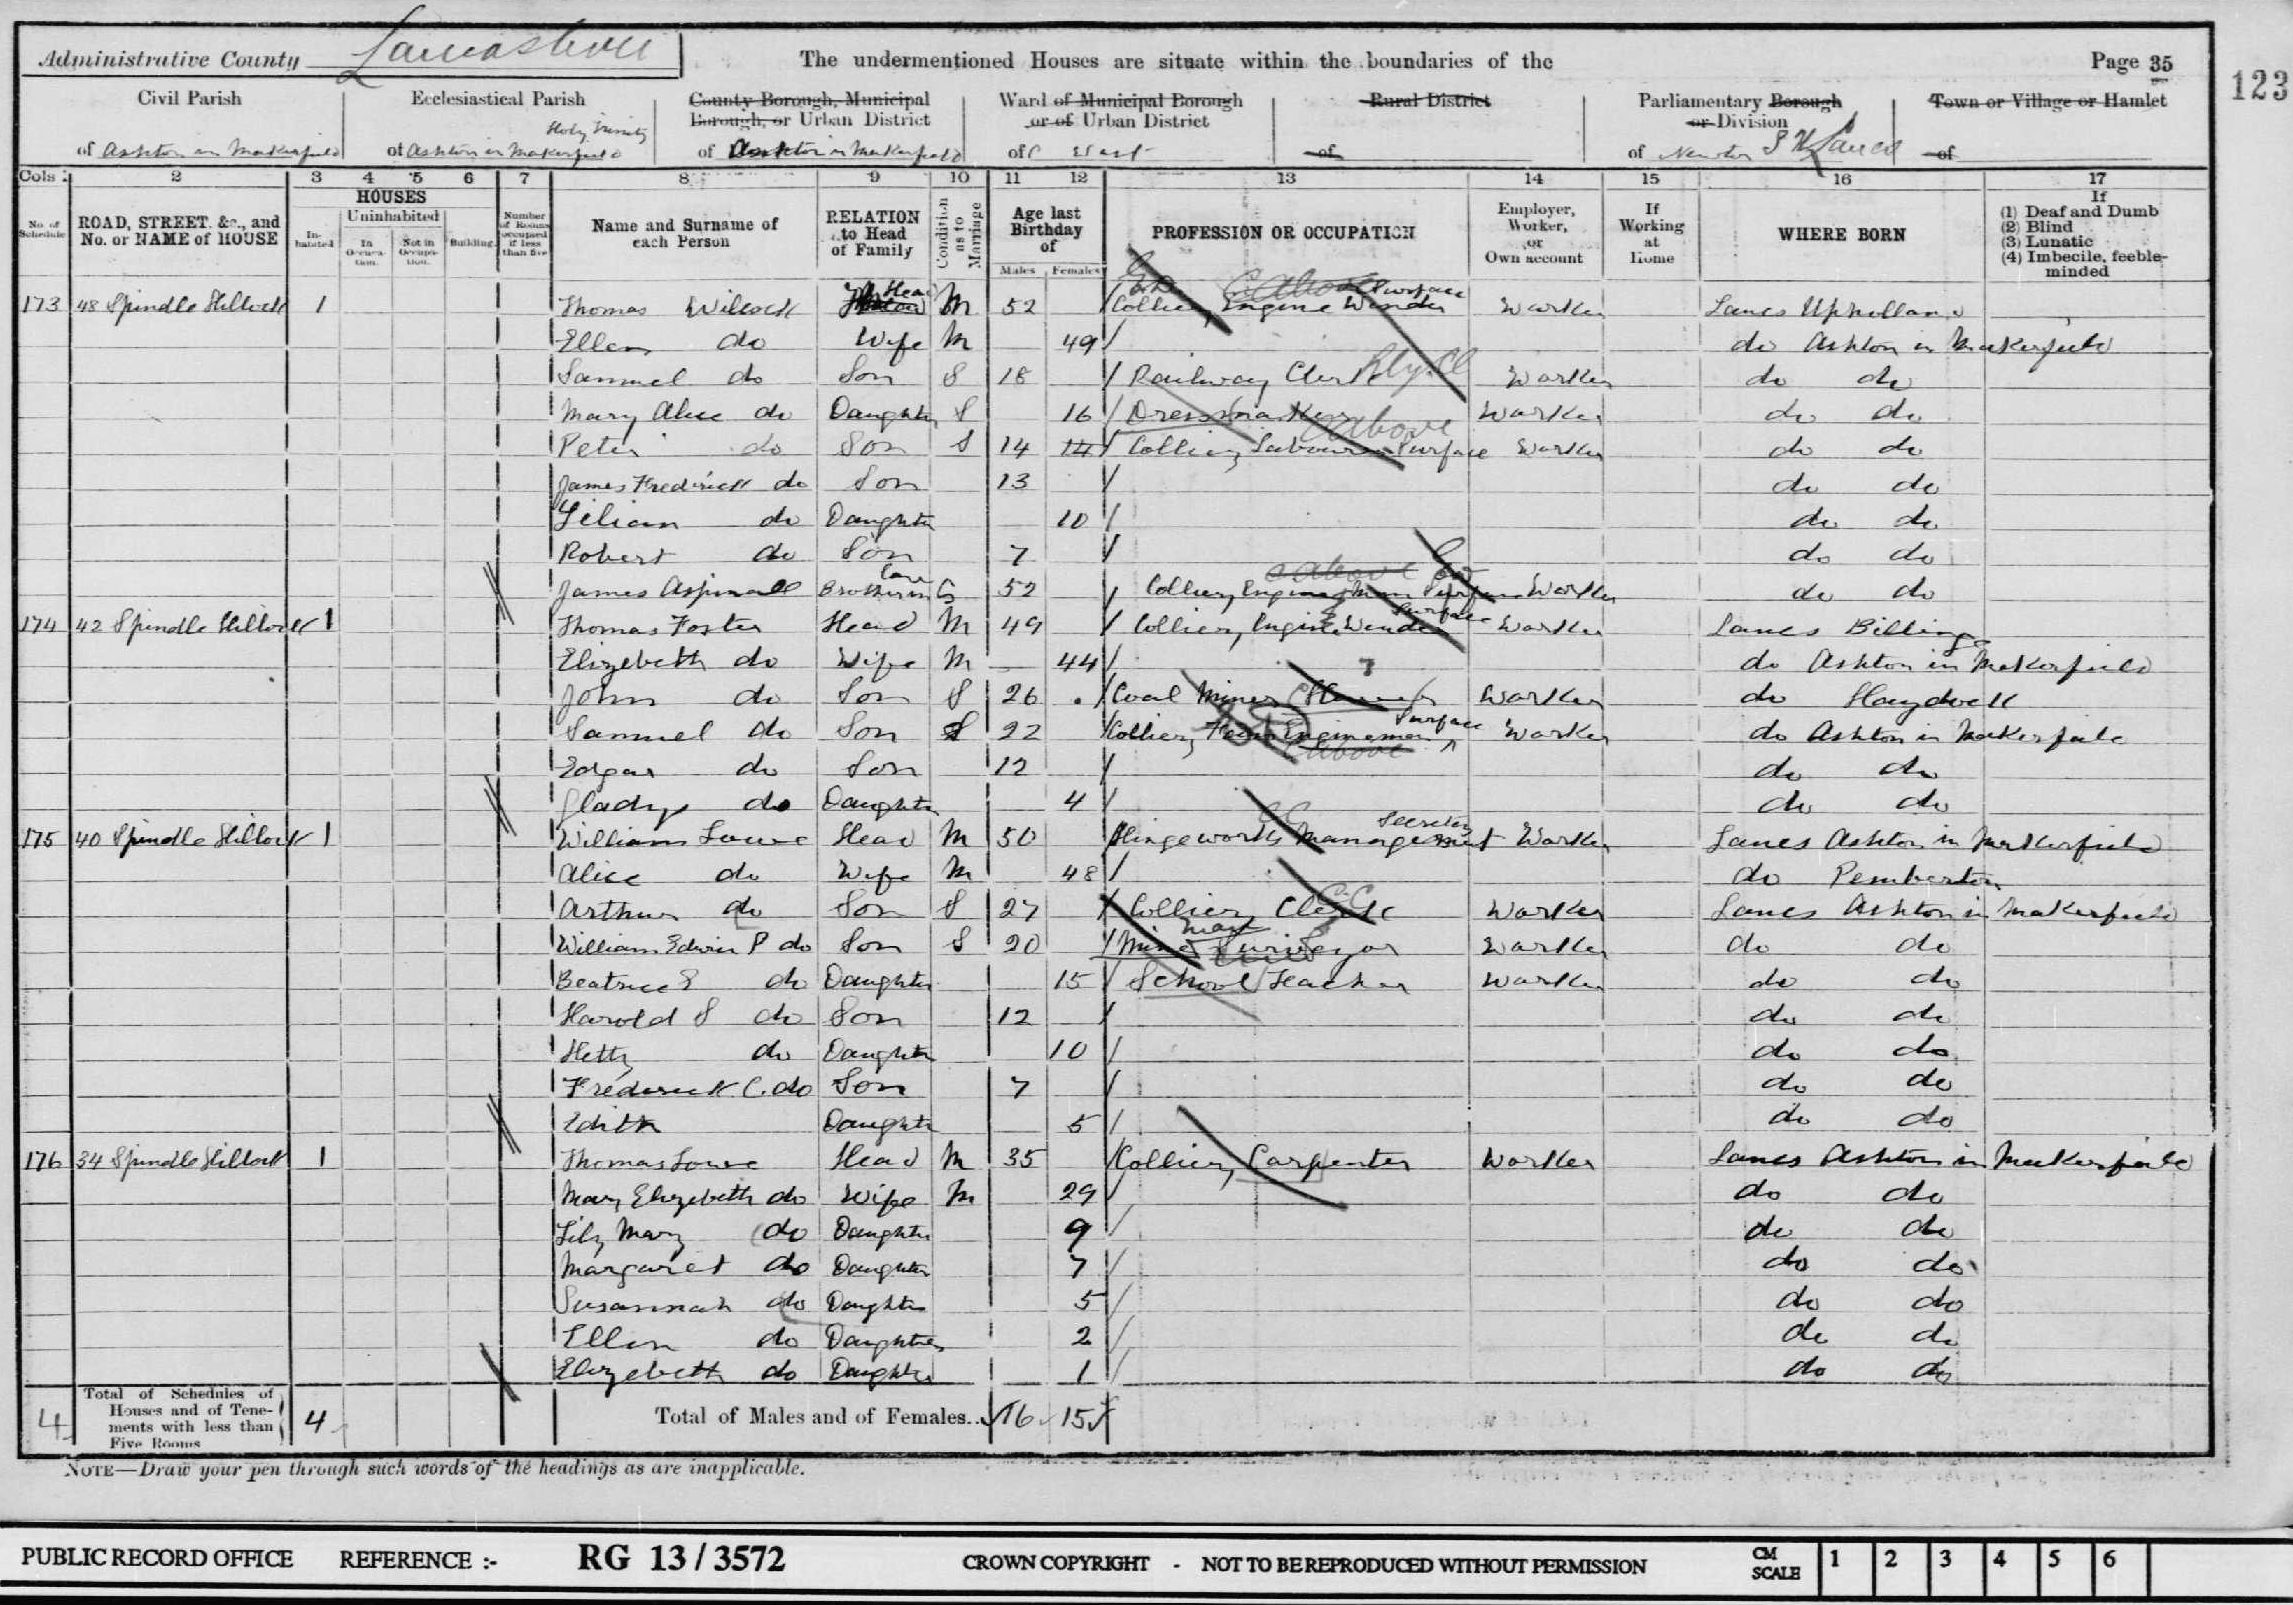 Administrative County Lancashire The undermentioned Houses are situate within the boundaries of the Page 35
123
Civil Parish Ecclesiastical Parish County Borough, Municipal Borough, or Urban District Ward of Municipal Borough or of Urban District Rural District Parliamentary Borough or Division Town or Village or Hamlet
of Ashton in Makerfield of Ashton in Makerfield Holy Trinity of Ashton in Makerfield of East of of Newton S W Lancs of
Cols 1 2 3 4 5 6 7 8 9 10 11 12 13 14 15 16 17
No. of Schedule ROAD, STREET, &c., and No. or NAME of HOUSE HOUSES Inhabited Uninhabited In Occupation. Not in Occupation. Building. Number of Rooms occupied if less than five Name and Surname of each Person RELATION to Head of Family Condition as to Marriage Age last Birthday of Males Females PROFESSION OR OCCUPATION Employer, Worker, or Own account If Working at Home WHERE BORN If (1) Deaf and Dumb (2) Blind (3) Lunatic (4) Imbecile, feeble-minded
173 48 Spindle Hillock 1 Thomas Willock Head M 52 Colliery Engine Winder Surface Worker Lancs Upholland
Ellen do Wife M 49 do Ashton in Makerfield
Samuel do Son S 18 Railway Clerk Rly. Cl Worker do do
Mary Alice do Daughter S 16 Dressmaker Worker do do
Peter do Son S 14 14 Colliery Labourer Surface above Worker do do
James Frederick do Son 13 do do
Lilian do Daughter 10 do do
Robert do Son 7 do do
James Aspinall Brother in Law S 52 Colliery Engine Man Surface above Worker do do
174 42 Spindle Hillock 1 Thomas Foster Head M 49 Colliery Engine Winder Surface Worker Lancs Billinge
Elizabeth do Wife M 44 do Ashton in Makerfield
John do Son S 26 Coal Miner Worker do Haydock
Samuel do Son S 22 Colliery Engineman Surface above Worker do Ashton in Makerfield
Edgar do Son 12 do do
Gladys do Daughter 4 do do
175 40 Spindle Hillock 1 William Lowe Head M 50 Hingeworks Management Secretary Worker Lancs Ashton in Makerfield
Alice do Wife M 48 do Pemberton
Arthur do Son S 27 Colliery Clerk Worker Lancs Ashton in Makerfield
William Edwin P do Son S 20 Mine Surveyor Worker do do
Beatrice E do Daughter 15 School Teacher Worker do do
Harold S do Son 12 do do
Hetty do Daughter 10 do do
Frederick C. do Son 7 do do
Edith Daughter 5 do do
176 34 Spindle Hillock 1 Thomas Lowe Head M 35 Colliery Carpenter Worker Lancs Ashton in Makerfield
Mary Elizabeth do Wife M 29 do do
Lily Mary do Daughter 9 do do
Margaret do Daughter 7 do do
Susannah do Daughter 5 do do
Ellen do Daughter 2 do do
Elizabeth do Daughter 1 do do
4 Total of Schedules of Houses and of Tenements with less than Five Rooms 4 Total of Males and of Females... 16 15
NOTE—Draw your pen through such words of the headings as are inapplicable.
PUBLIC RECORD OFFICE REFERENCE :- RG 13 / 3572 CROWN COPYRIGHT - NOT TO BE REPRODUCED WITHOUT PERMISSION CM SCALE 1 2 3 4 5 6